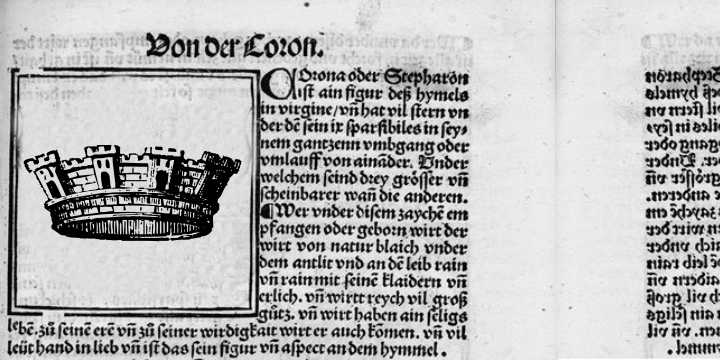 Von der Coron.
COrona oder Stepharon
ist ain figur deß hymels
in virgine/ vñ hat vil stern vn
der dē sein ix sparsibiles in sey⸗
nem gantzenn vmbgang oder
vmlauff von aināder. Vnder
welchem seind drey grösser vñ
scheinbarer wañ die anderen.
¶ Wer vnder disem zaychē em
pfangen oder geborn wirt der
wirt von natur blaich vnder
dem antlit vnd an dē leib rain
vñ rain mit seinē klaidern vñ
erlich. vñ wirtt reych vil groß
gůtz. vñ wirt haben ain seligs
lebē. zů seinē erē vñ zů seiner wirdigkait wirt er auch kōmen. vñ vil
leüt hand in lieb vñ ist das sein figur vñ aspect an dem hymmel.